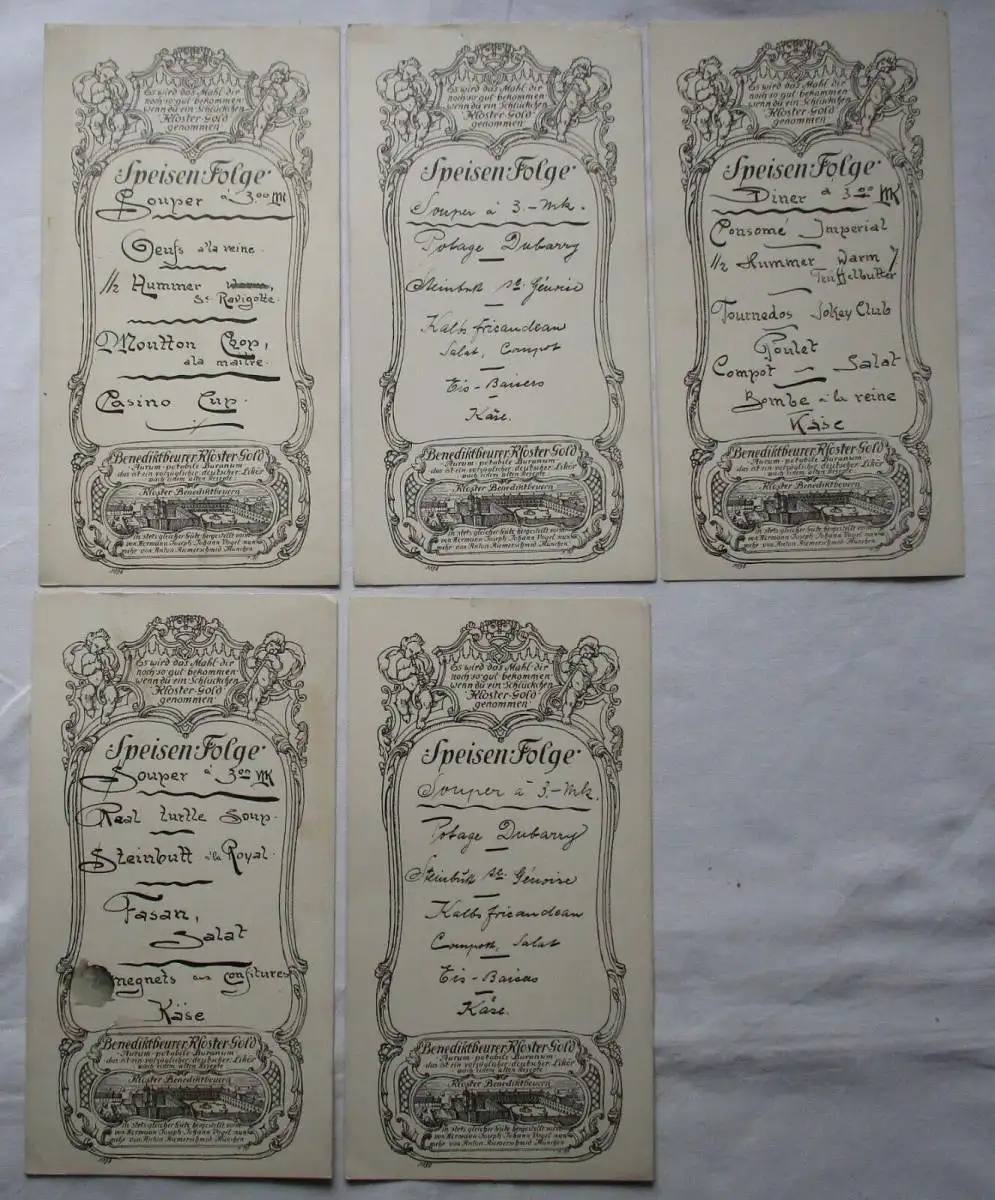 Es wird das Mahl dir
noch so gut bekommen
wenn du ein Schlückchen
Kloster-Gold
genommen
Speisen-Folge
Souper à 3.00 Mk
Oeufs à la reine.
1/2 Hummer
sc Ravigotte.
Moutton Chop,
à la maitre.
Casino Cup.
Benediktbeurer Kloster-Gold
Aurum-potabile Buranum
das ist ein vorzüglicher deutscher Likör
nach einem alten Rezepte
Kloster Benediktbeuern
in stets gleicher Güte hergestellt vorm.
von Hermann Joseph Johann Vogel nun-
mehr von Anton Riemerschmid München
Es wird das Mahl dir
noch so gut bekommen
wenn du ein Schlückchen
Kloster-Gold
genommen
Speisen-Folge
Souper à 3.- Mk.
Potage Dubarry
Steinbutt sc. Génoise
Kalbsfricandeau
Salat, Compot
Eis-Baisers
Käse.
Benediktbeurer Kloster-Gold
Aurum-potabile Buranum
das ist ein vorzüglicher deutscher Likör
nach einem alten Rezepte
Kloster Benediktbeuern
in stets gleicher Güte hergestellt vorm.
von Hermann Joseph Johann Vogel nun-
mehr von Anton Riemerschmid München
Es wird das Mahl dir
noch so gut bekommen
wenn du ein Schlückchen
Kloster-Gold
genommen
Speisen-Folge
Diner à 3 00 Mk
Consomé Imperial
1/2 Hummer warm
Trüffelbutter
Tournedos Jokey Club
Poulet
Compot - Salat
Bombe à la reine
Käse
Benediktbeurer Kloster-Gold
Aurum-potabile Buranum
das ist ein vorzüglicher deutscher Likör
nach einem alten Rezepte
Kloster Benediktbeuern
in stets gleicher Güte hergestellt vorm.
von Hermann Joseph Johann Vogel nun-
mehr von Anton Riemerschmid München
Es wird das Mahl dir
noch so gut bekommen
wenn du ein Schlückchen
Kloster-Gold
genommen
Speisen-Folge
Souper à 3 00 Mk
Real turtle Soup.
Steinbutt à la Royal.
Fasan,
Salat
confitures
Käse
Benediktbeurer Kloster-Gold
Aurum-potabile Buranum
das ist ein vorzüglicher deutscher Likör
nach einem alten Rezepte
Kloster Benediktbeuern
in stets gleicher Güte hergestellt vorm.
von Hermann Joseph Johann Vogel nun-
mehr von Anton Riemerschmid München
Es wird das Mahl dir
noch so gut bekommen
wenn du ein Schlückchen
Kloster-Gold
genommen
Speisen-Folge
Souper à 3.- Mk.
Potage Dubarry
Steinbutt sc. Génoise
Kalbsfricandeau
Compott, Salat
Eis-Baisers
Käse.
Benediktbeurer Kloster-Gold
Aurum-potabile Buranum
das ist ein vorzüglicher deutscher Likör
nach einem alten Rezepte
Kloster Benediktbeuern
in stets gleicher Güte hergestellt vorm.
von Hermann Joseph Johann Vogel nun-
mehr von Anton Riemerschmid München